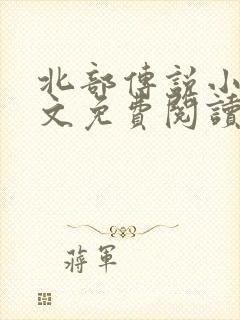 北部傳説小
文免費閱讀
蔣軍